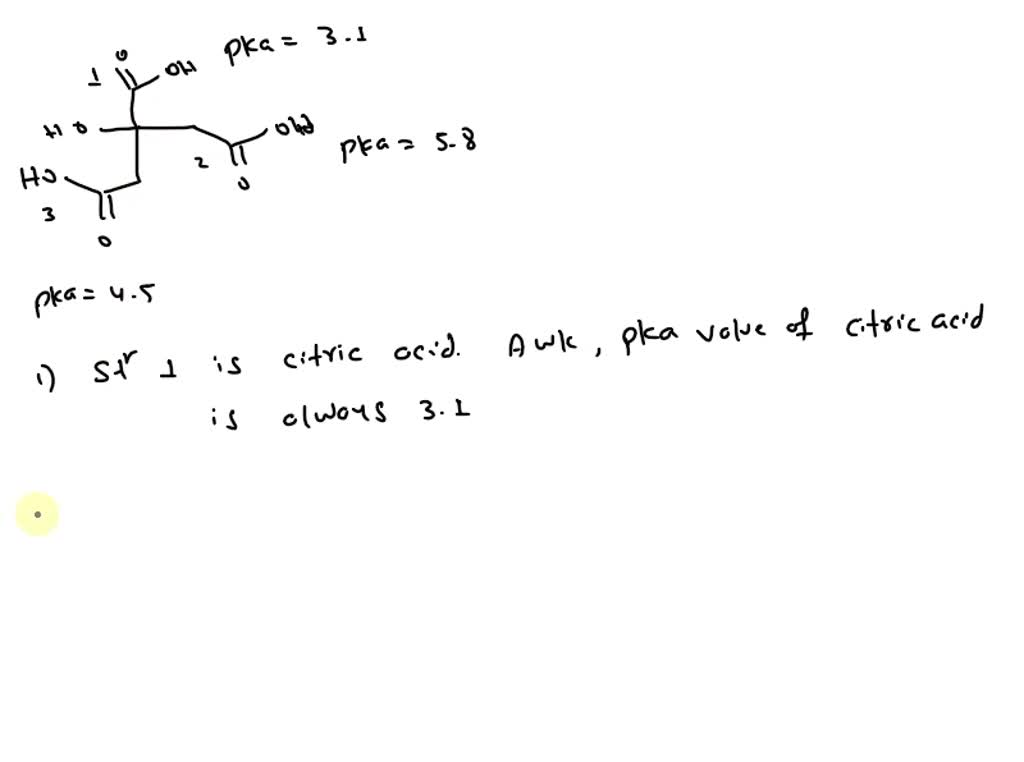 O
1 OH pka = 3.1
HO OH
2 O pka = 5.8
HO
3
O
pka = 4.5
1) Str 1 is citric acid. Awk, pka value of citric acid
is always 3.1